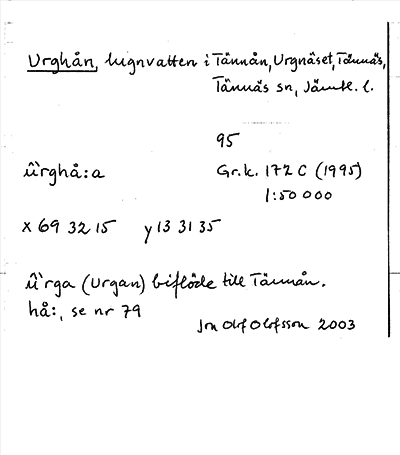 Urghån, lugnvatten i Tännån, Urgnäset, Tännäs,
Tännäs sn, Jämtl. l.
95
û`rghå:a
Gr.k. 172 C (1995)
1:50 000
x 69 32 15 y 13 31 35
û`rga (Urgan) biflöde till Tännån.
hå:, se nr 79
Jon Olof Olofsson 2003